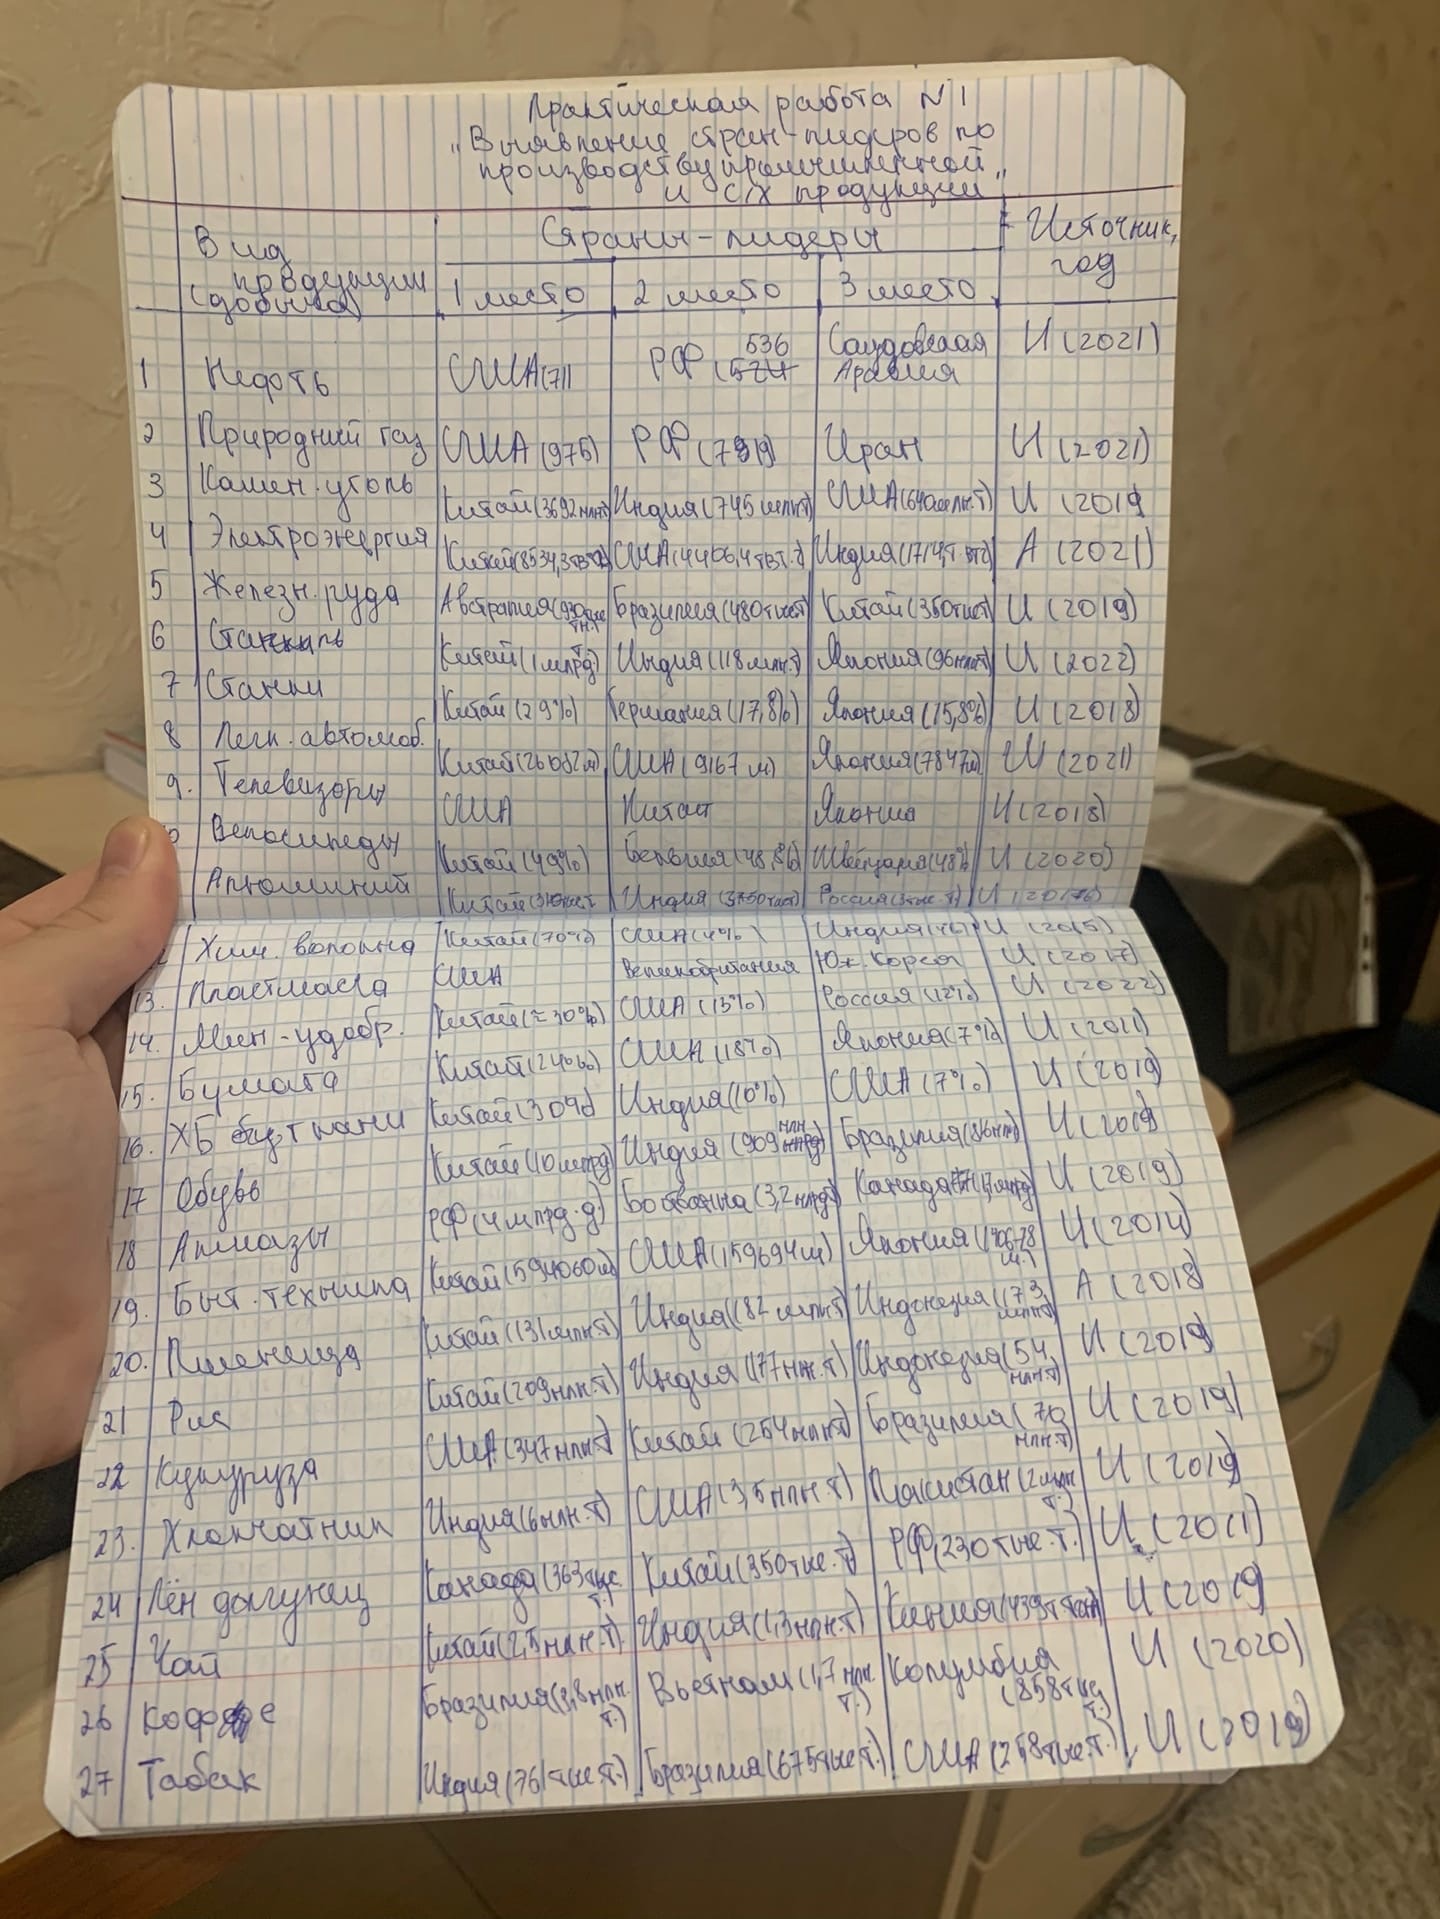 Практическая работа N1
„Выявление стран-лидеров по
производству промышленной
и с/х продукции"
Вид продукции (добыча) Страны-лидеры Источник, год
1 место 2 место 3 место
1 Нефть США (711 РФ (524 536 Саудовская Аравия И (2021)
2 Природний газ США (975) РФ (7919) Иран И (2021)
3 Камен. уголь Китай (3692 млн т) Индия (745 млн.т) США (640 млн.т) И (2019
4 Электроэнергия Китай (8534,3 твт) США (4406,4 твт.) Индия (1714,т.втч) А (2021)
5 Железн. руда Австралия (930 тыс тн.) Бразилия (480 тыс т) Китай (350 тыс т) И (2019)
6 Сталь Китай (1 млрд т) Индия (118 млн.т) Япония (96 млн т) И (2022)
7 Станки Китай (29%) Германия (17,8%) Япония (15,8%) И (2018)
8 Легк. автомоб. Китай (26082 м) США (9167 м) Япония (7847 м) И (2021)
9. Телевизоры США Китай Япония И (2018)
Велосипеды Китай (49%) Бельгия (48,8%) Швейцария (48% И (2020)
Алюминий Китай Индия (3750 тыс т) Россия (3 тыс.т) И
Хим. волокна Китай (70%) США (4%) Индия И (2015)
13. Пластмасса США Великобритания Юж. Корея И (2017)
14. Мин-удобр. Китай (≈30%) США (13%) Россия (12%) И (2022)
15. Бумага Китай (24%) США (18%) Япония (7%) И (2011)
16. ХБ ткани Китай (30%) Индия (10%) США (7%) И (2019)
17 Обувь Китай (10 млрд) Индия (909 млн млрд) Бразилия И (2019)
18 Алмазы РФ (4 млрд.д.) Ботвана (3,2 млрд) Канада И (2019)
19. Быт. техника Китай (594060 м) США (159694 м) Япония (140678 м.) И (2014)
20. Пшеница Китай (131 млн.т) Индия (182 млн.т) Индонезия (173 млн.т) А (2018)
21 Рис Китай (209 млн.т) Индия (177 млн.т) Индонезия (54 млн.т) И (2019)
22 Кукуруза США (347 млн.т) Китай (254 млн.т) Бразилия (70 млн.т) И (2019)
23. Хлопчатник Индия (6 млн.т) США (3,5 млн.т) Пакистан (2 млн т.) И (2019)
24 Лён долгунец Канада (363 тыс т.) Китай (350 тыс.т) РФ (230 тыс.т.) И (2011)
25 Чай Китай (2,5 млн.т). Индия (1,3 млн.т) Кения И (2019)
26 Кофе Бразилия (3,8 млн. т.) Вьетнам (1,7 млн. т.) Колумбия (858 тыс т.) И (2020)
27 Табак Индия (761 тыс.т.) Бразилия (675 тыс т.) США (258 тыс.т.) И (2019)